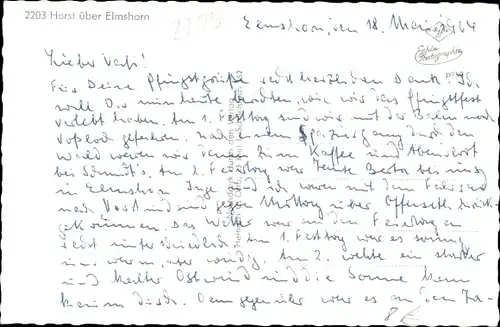 2203 Horst über Elmshorn
Elmshorn, den 18. Mai 64
Echte Photographie
Für Deine Pfingstgrüße recht herzlichen Dank. Ich
will Dir nun heute berichten, wie wir das Pfingstfest
verlebt haben. Am 1. Festtag sind wir mit der Bahn nach
gefahren. Nach einem Spaziergang durch den
Wald waren wir dann zum Kaffee und Abendbrot
bei Schmidt's. Am 2. Festtag war Tante Berta bei uns
in Elmshorn. Inge und ich waren mit dem Fahrrad
nach Horst und sind gegen Mittag über Offenseth zurück-
gekommen. Das Wetter war an den Feiertagen
recht unterschiedlich. Am 1. Festtag war es sonnig
und warm, aber windig. Am 2. wehte ein starker
und kalter Ostwind und die Sonne kam
kaum durch. Demgegenüber war es an den